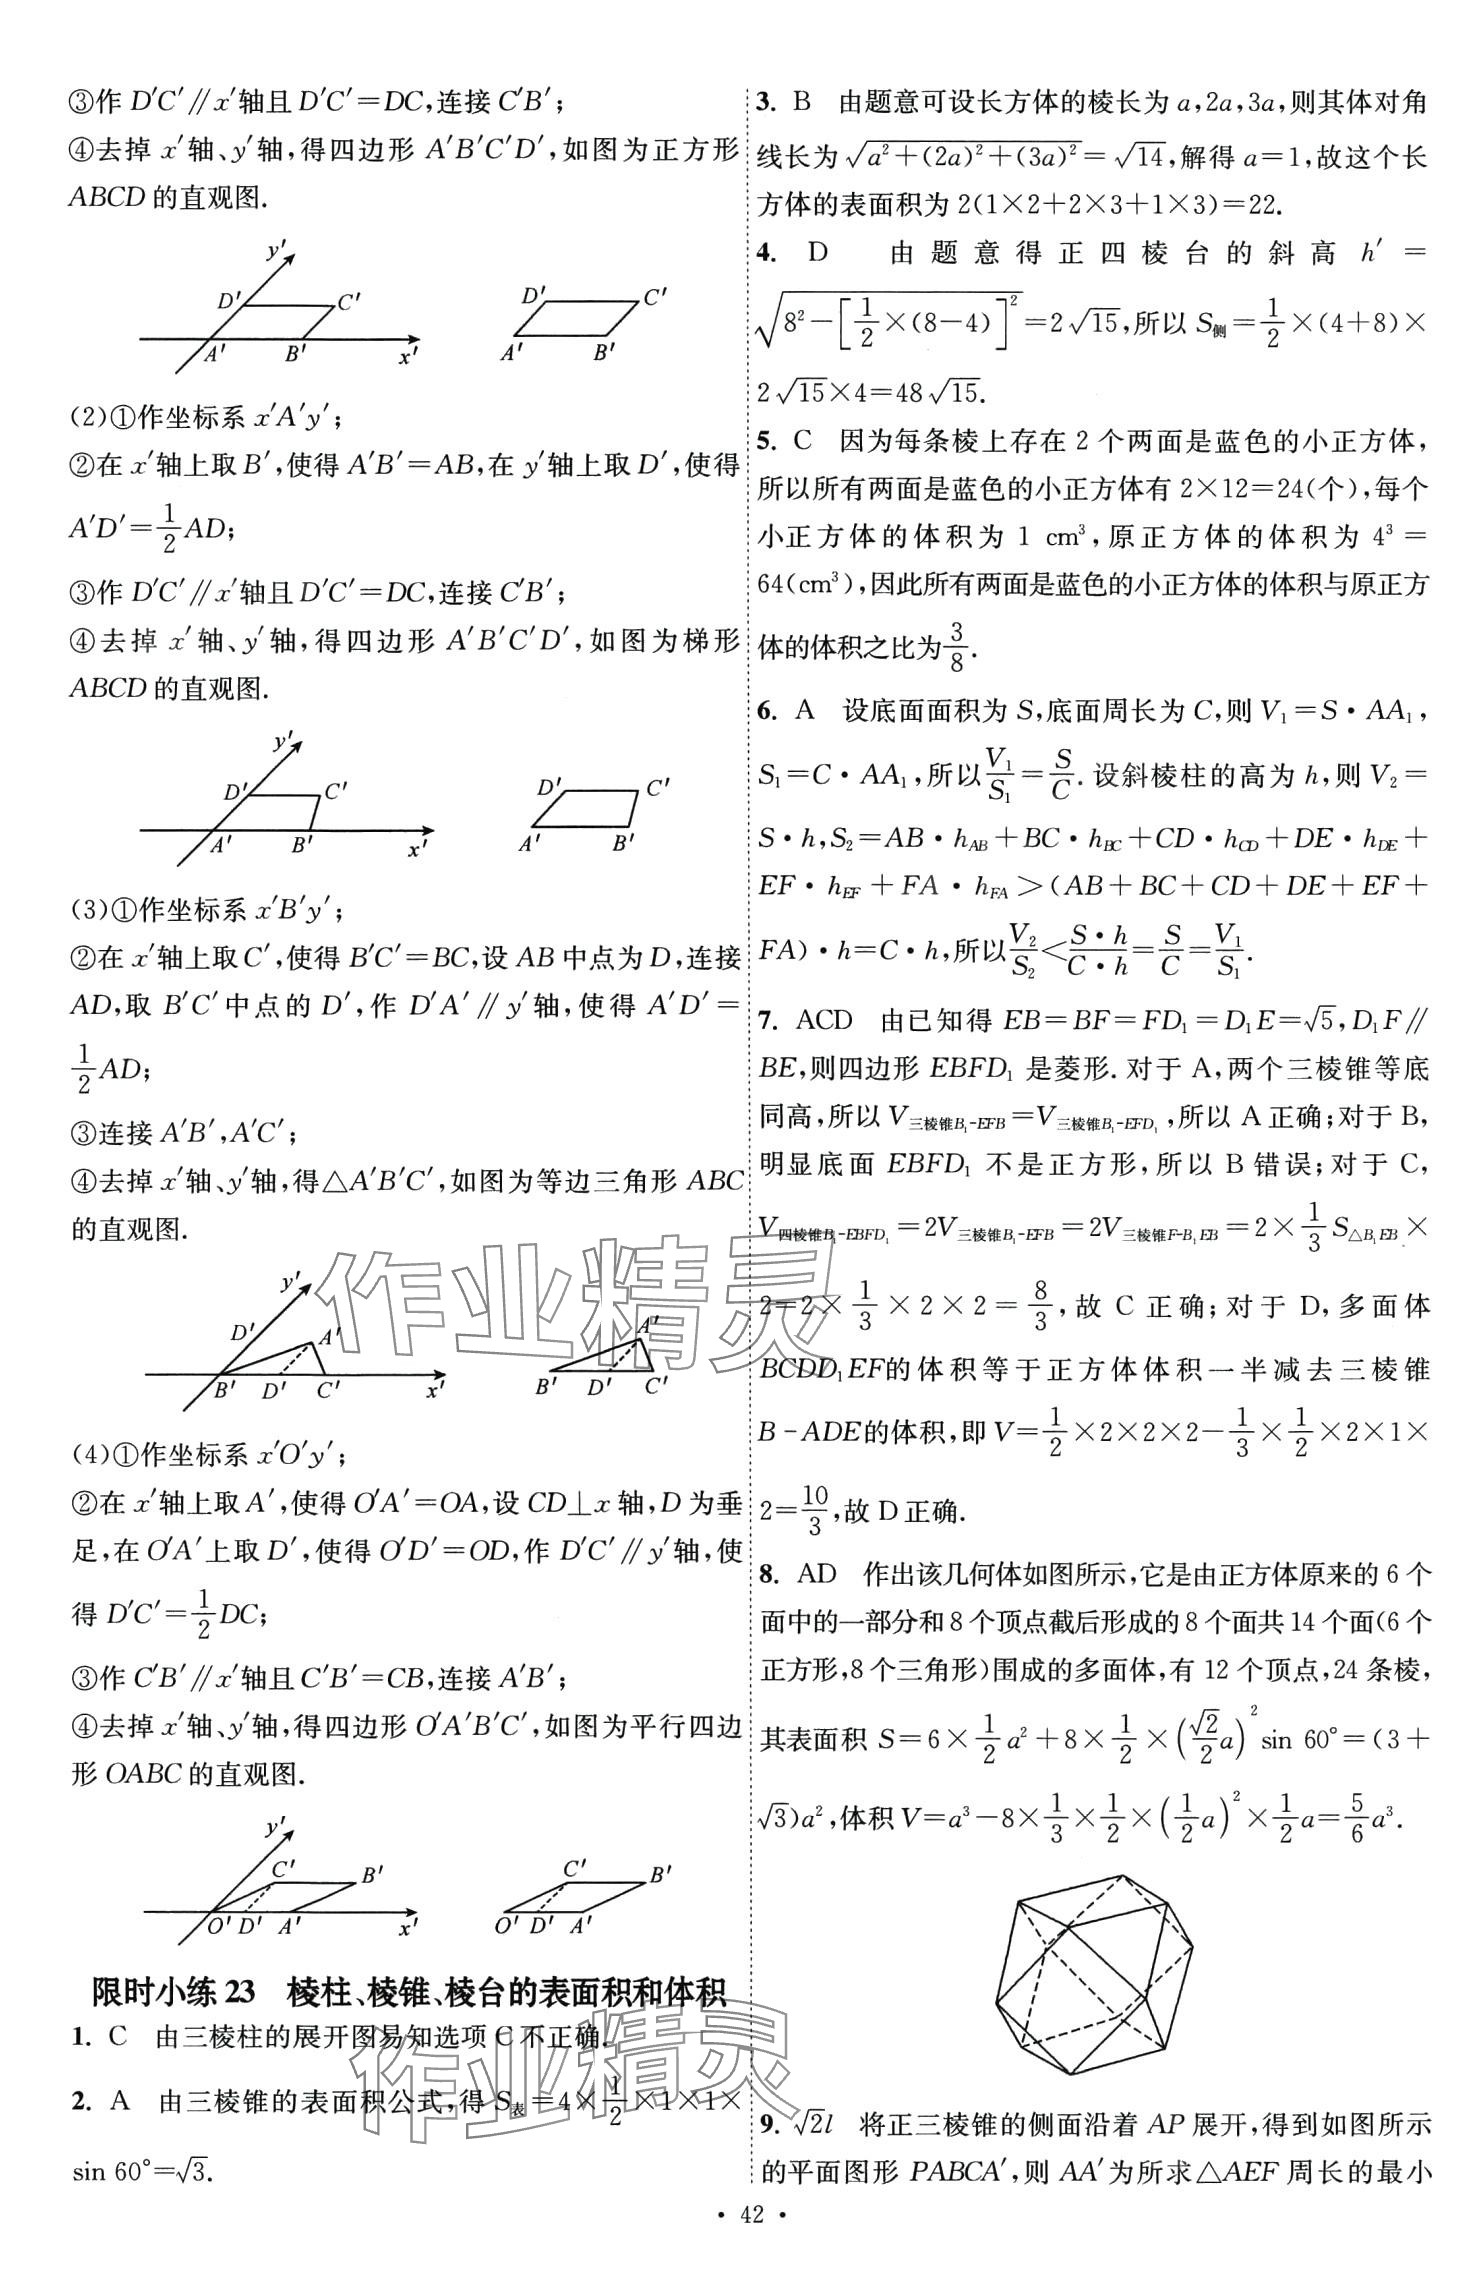 ③作 D′C′∥x′轴且 D′C′=DC,连接 C′B′;
④去掉 x′轴、y′轴,得四边形 A′B′C′D′,如图为正方形
ABCD 的直观图.
y′
D′ C′
A′ B′ x′
D′ C′
A′ B′
(2)①作坐标系 x′A′y′;
②在 x′轴上取 B′,使得 A′B′=AB,在 y′轴上取 D′,使得
A′D′=1/2AD;
③作 D′C′∥x′轴且 D′C′=DC,连接 C′B′;
④去掉 x′轴、y′轴,得四边形 A′B′C′D′,如图为梯形
ABCD 的直观图.
y′
D′ C′
A′ B′ x′
D′ C′
A′ B′
(3)①作坐标系 x′B′y′;
②在 x′轴上取 C′,使得 B′C′=BC,设 AB 中点为 D,连接
AD,取 B′C′中点的 D′,作 D′A′∥y′轴,使得 A′D′=
1/2AD;
③连接 A′B′,A′C′;
④去掉 x′轴、y′轴,得△A′B′C′,如图为等边三角形 ABC
的直观图.
y′
D′ A′
B′ D′ C′ x′
A′
B′ D′ C′
(4)①作坐标系 x′O′y′;
②在 x′轴上取 A′,使得 O′A′=OA,设 CD⊥x 轴,D 为垂
足,在 O′A′上取 D′,使得 O′D′=OD,作 D′C′∥y′轴,使
得 D′C′=1/2DC;
③作 C′B′∥x′轴且 C′B′=CB,连接 A′B′;
④去掉 x′轴、y′轴,得四边形 O′A′B′C′,如图为平行四边
形 OABC 的直观图.
y′
C′ B′
O′ D′ A′ x′
C′ B′
O′ D′ A′
限时小练 23 棱柱、棱锥、棱台的表面积和体积
1. C 由三棱柱的展开图易知选项 C 不正确.
2. A 由三棱锥的表面积公式,得 S表=4×1/2×1×1×
sin 60°=√3.
3. B 由题意可设长方体的棱长为 a,2a,3a,则其体对角
线长为√(a²+(2a)²+(3a)²)=√14,解得 a=1,故这个长
方体的表面积为 2(1×2+2×3+1×3)=22.
4. D 由题意得正四棱台的斜高 h′=
√(8²-[1/2×(8-4)]²)=2√15,所以 S侧=1/2×(4+8)×
2√15×4=48√15.
5. C 因为每条棱上存在 2 个两面是蓝色的小正方体,
所以所有两面是蓝色的小正方体有 2×12=24(个),每个
小正方体的体积为 1 cm³,原正方体的体积为 4³=
64(cm³),因此所有两面是蓝色的小正方体的体积与原正方
体的体积之比为3/8.
6. A 设底面面积为 S,底面周长为 C,则 V₁=S·AA₁,
S₁=C·AA₁,所以V₁/S₁=S/C.设斜棱柱的高为 h,则 V₂=
S·h,S₂=AB·h_AB+BC·h_BC+CD·h_CD+DE·h_DE+
EF·h_EF+FA·h_FA>(AB+BC+CD+DE+EF+
FA)·h=C·h,所以V₂/S₂<S·h/C·h=S/C=V₁/S₁.
7. ACD 由已知得 EB=BF=FD₁=D₁E=√5,D₁F∥
BE,则四边形 EBFD₁ 是菱形.对于 A,两个三棱锥等底
同高,所以 V三棱锥B₁-EFB=V三棱锥B₁-EFD₁,所以 A 正确;对于 B,
明显底面 EBFD₁ 不是正方形,所以 B 错误;对于 C,
V四棱锥B₁-EBFD₁=2V三棱锥B₁-EFB=2V三棱锥F-B₁EB=2×1/3S△B₁EB×
2=2×1/3×2×2=8/3,故 C 正确;对于 D,多面体
BCDD₁EF的体积等于正方体体积一半减去三棱锥
B-ADE的体积,即 V=1/2×2×2×2-1/3×1/2×2×1×
2=10/3,故 D 正确.
8. AD 作出该几何体如图所示,它是由正方体原来的 6 个
面中的一部分和 8 个顶点截后形成的 8 个面共 14 个面(6 个
正方形,8 个三角形)围成的多面体,有 12 个顶点,24 条棱,
其表面积 S=6×1/2a²+8×1/2×(√2/2a)²sin 60°=(3+
√3)a²,体积 V=a³-8×1/3×1/2×(1/2a)²×1/2a=5/6a³.
9. √2l 将正三棱锥的侧面沿着 AP 展开,得到如图所示
的平面图形 PABCA′,则 AA′为所求△AEF 周长的最小
·42·
作业精灵
作业精灵